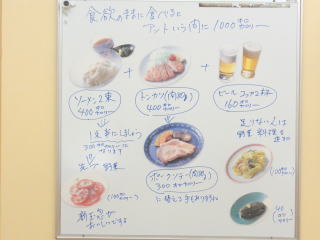 食欲のままに食べると
アッという間に1000キロカロリー
+
+
ソーメン2束
400キロカロリー
トンカツ(肉100g)
400キロカロリー
ビール コップ2杯
160キロカロリー
1束半にしましょう
300キロカロリーに
なります
野菜
足りない人は
野菜料理を
ポークソテー(肉100g)
300キロカロリー
(100キロカロリー)
(100キロカロリー)
新玉ねぎが
おいしいです
40
キロ
カロリー